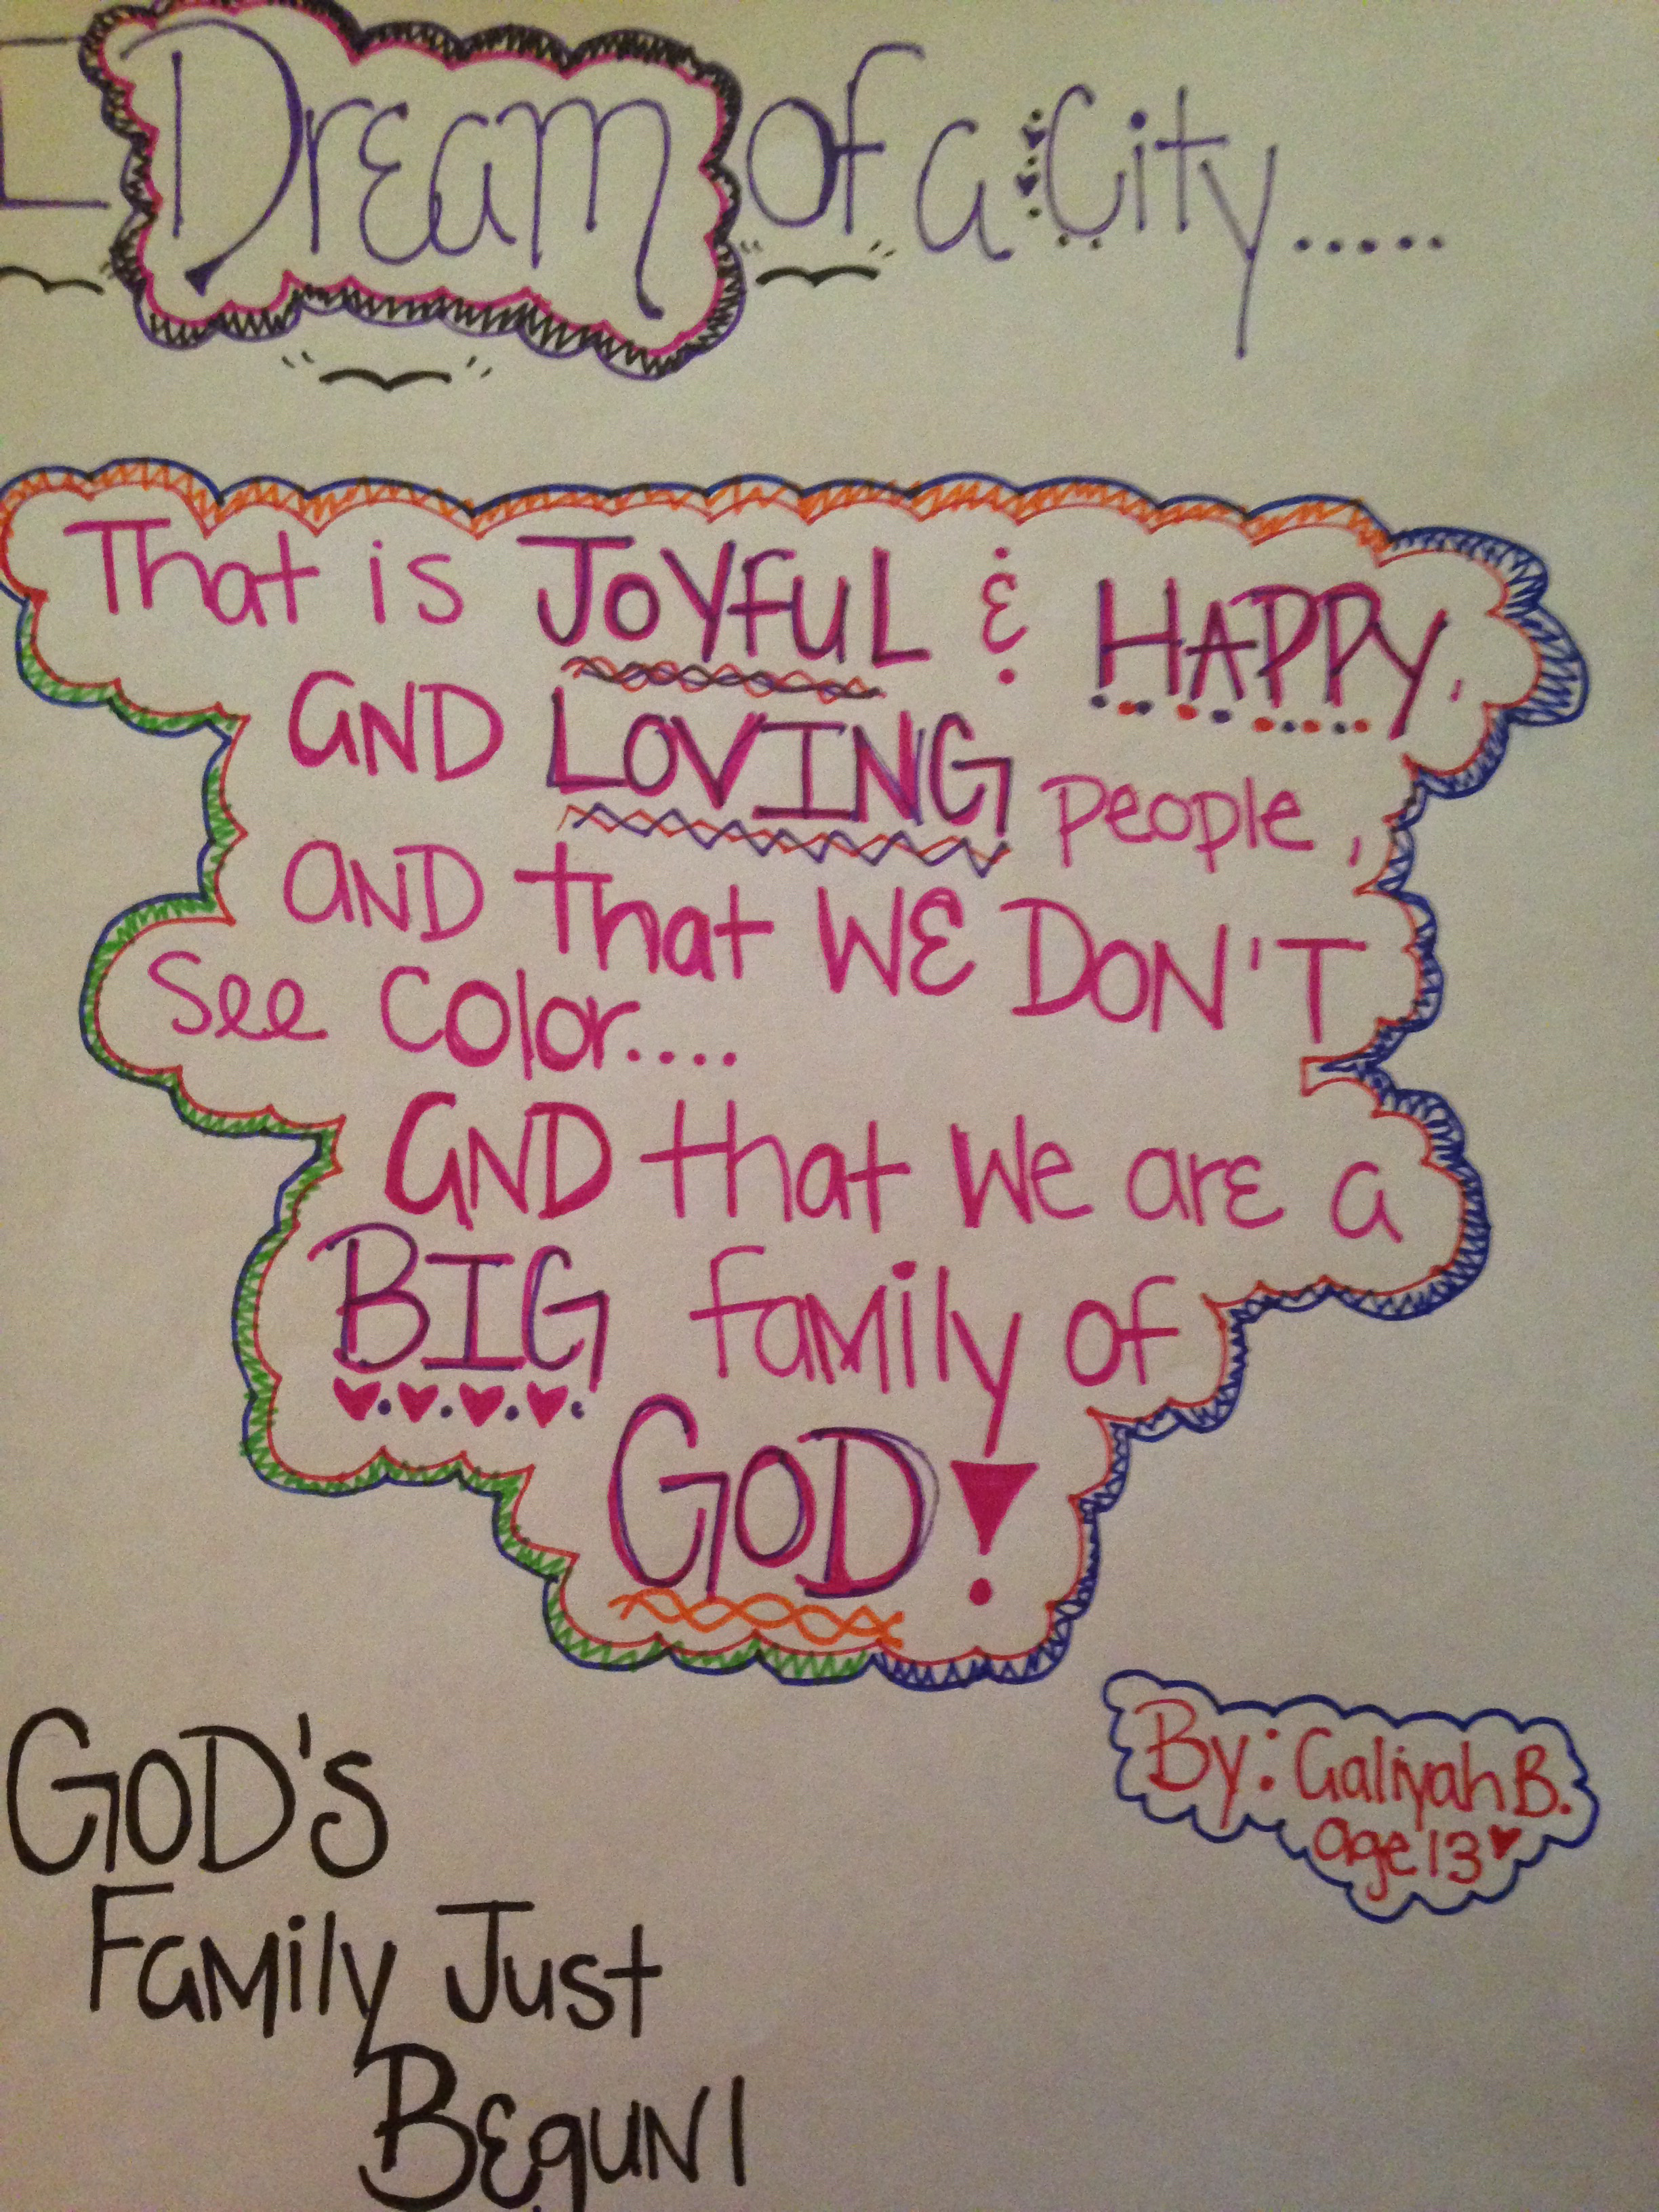 I Dream of a City.....
That is JOYFUL & HAPPY,
AND LOVING people,
AND that WE DON'T
See Color....
AND that We are a
BIG family of
GOD!
By: Galiyah B.
age 13
GOD's
Family Just
BEgUN!